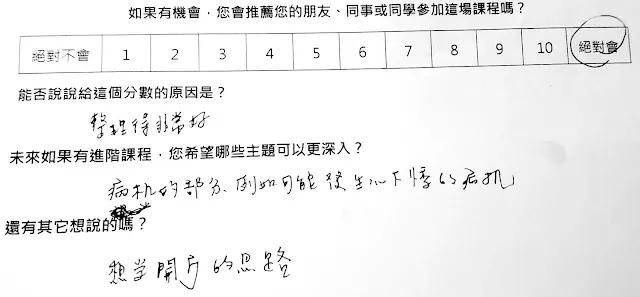 如果有機會，您會推薦您的朋友、同事或同學參加這場課程嗎？
絕對不會 1 2 3 4 5 6 7 8 9 10 絕對會
能否說說給這個分數的原因是？
整理得非常好
未來如果有進階課程，您希望哪些主題可以更深入？
病机的部分、例如可能發生心下悸的病机
還有其它想說的嗎？
想学開方的思路